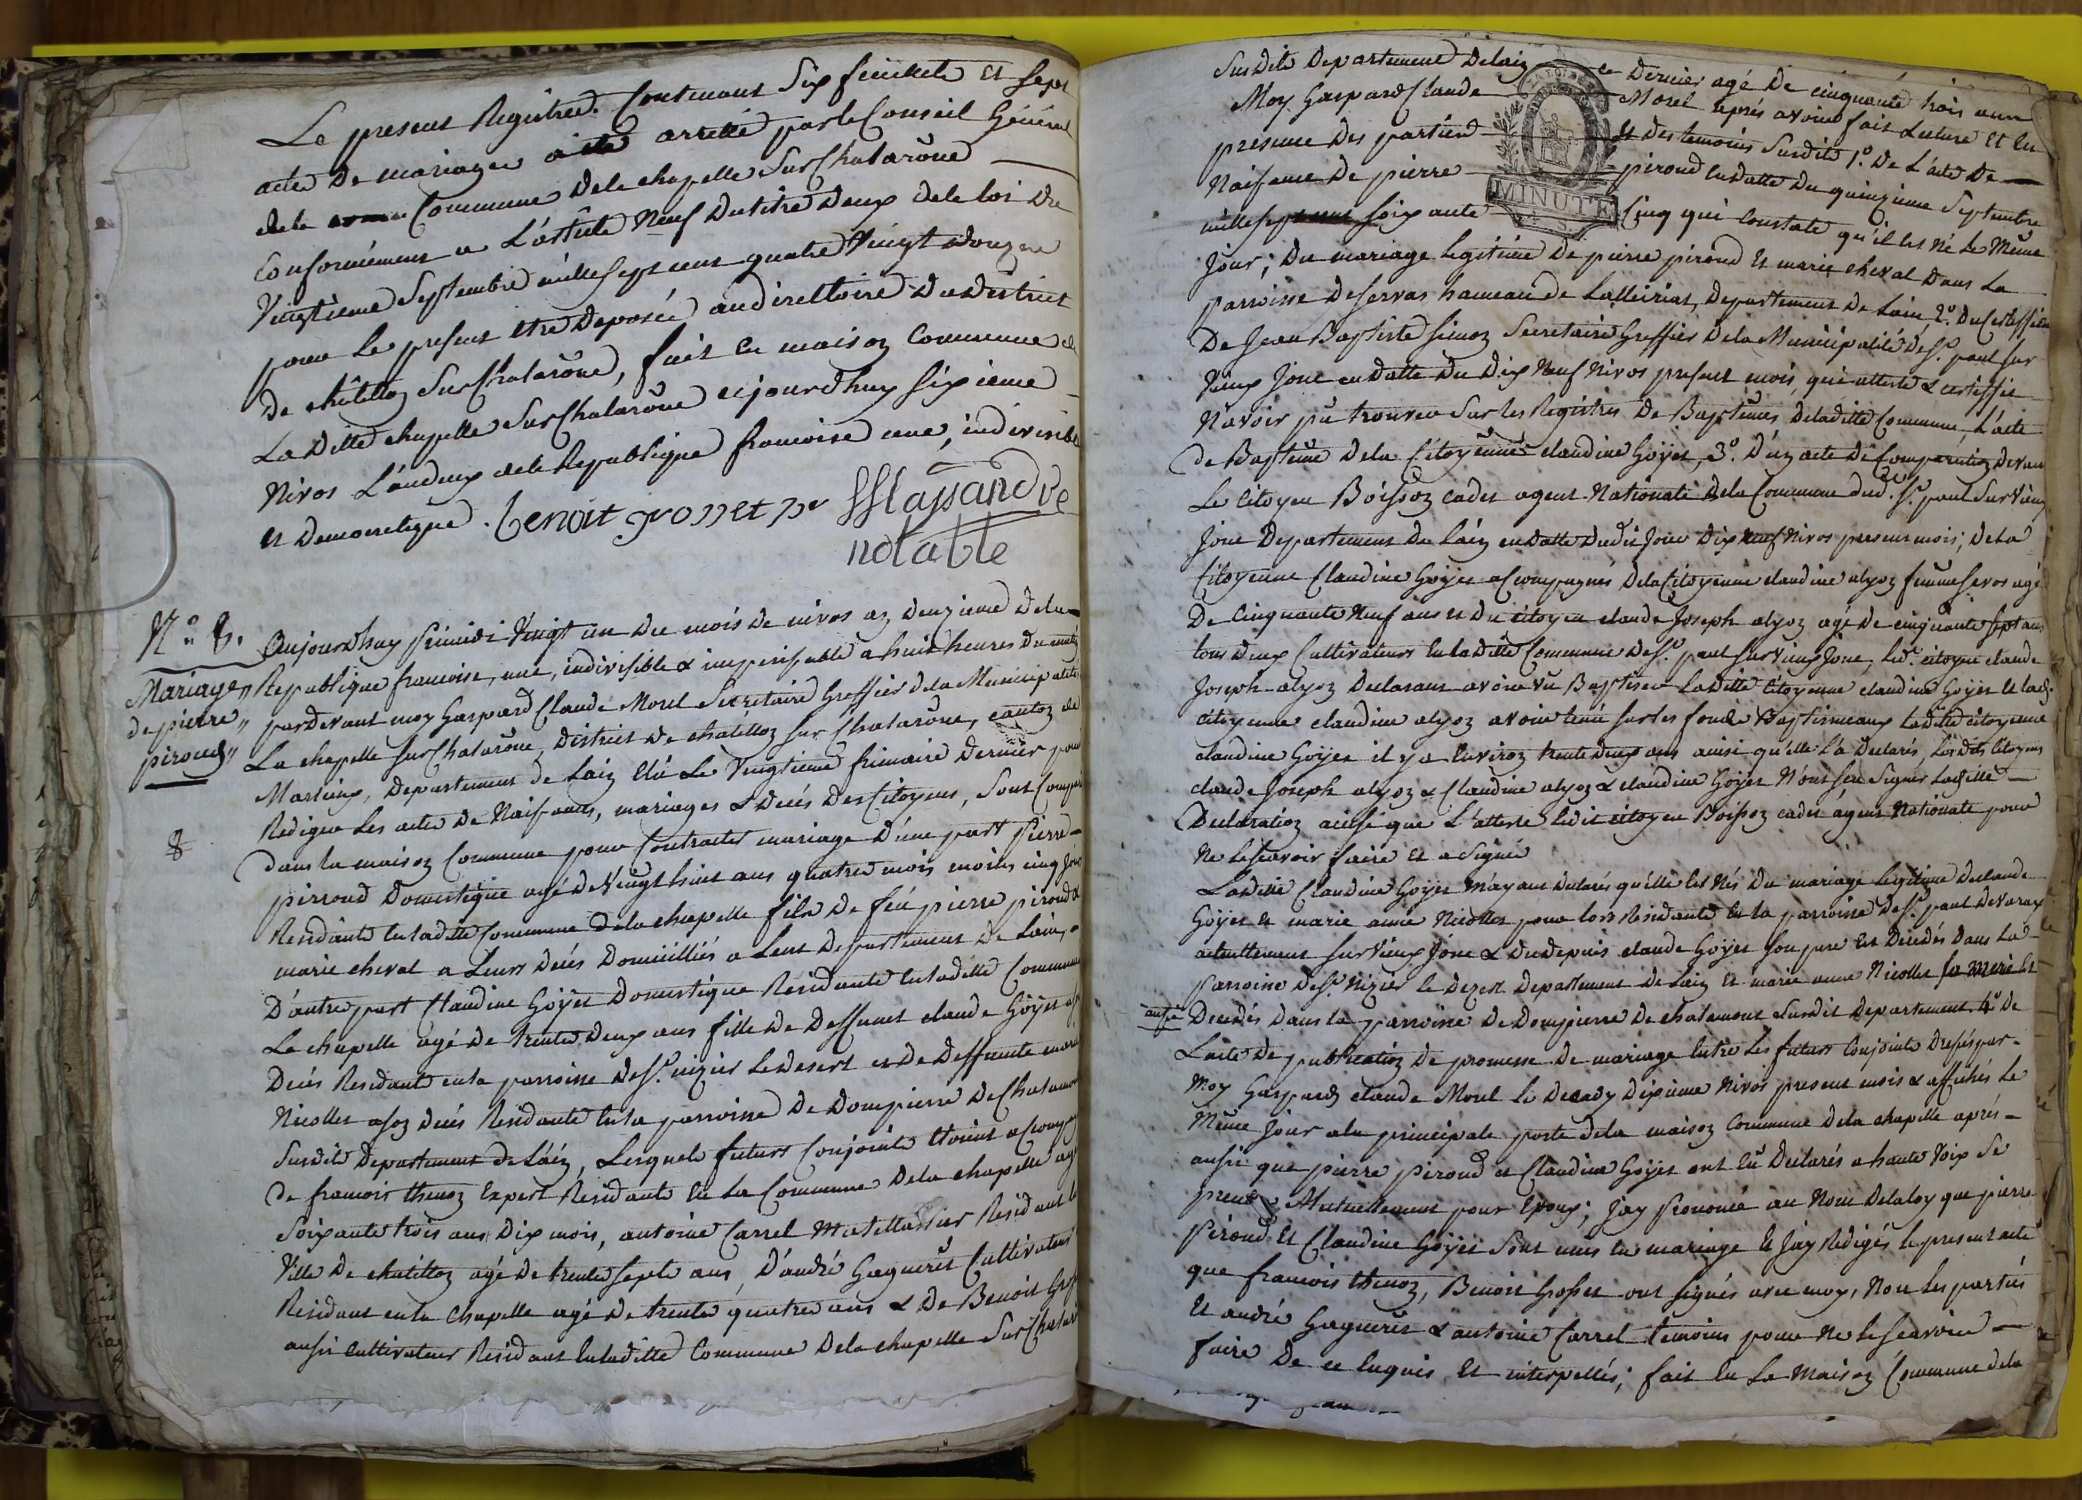 Le present Registre Contenant Six feuillets et Sept
actes de mariages a été arretté par le Conseil Général
de la Commune de la chapelle Sur Chalarône
Conformément a L'article Neuf du titre Deux de la loi du
Vingtieme Septembre mille Sept cent quatre Vingt douze
pour Le present etre Deposée au directtoire du District
De châtillon Sur Chalarône, fait en maison Commune de
La Ditte chapelle Sur Chalarône cejourdhuy Sixieme
Nivos L'an deux de la Republique francoise une, indivisible
et Democratique. Benoit grosset
notable
N° 8.
Mariage
de pierre
piroud
8
Aujourdhuy primidi Vingt un du mois de nivos an deuzieme de la
Republique francoise, une, indivisible & imperissable a huit heures du matin
pardevant moy Gaspard Claude Morel Secretaire Greffier de la Municipalité
La chapelle sur Chalarône, District de châtillon sur Chalarône, canton de
Marlieux, Departement de Lain Elû Le Vingtieme frimaire Dernier pour
Rediger Les actes de Naissances, mariages & Decés Des Citoyens, Sont Comparû
dans la maison Commune pour Contracter mariage D'une part Pierre
pirroud Domestique agé de Vingt huit ans quatre mois moins cinq jours
Residante en laditte Commune de la chapelle fils de feü pierre piroud &
marie cheval a Leurs Decés Domicilliés a Lent Departement de Lain,
D'autre part Claudine Goÿet Domestique Residante en ladille Commune
La chapelle agé de trente deux ans fille de Deffunct claude Goÿet a son
Decés Residante en la parroisse de St. nizier Le Desert et de Deffunte marie
Nicollet a son decés Residante en la parroisse de Dompierre De Chalamont
Susdit Departement de Laïn, Lesquels futurs Conjoints Etoint accompagné
De francois thenoz Expert Residante En La Commune Dela chapelle agé
Soixante trois ans Dix mois, antoine Carrel Matellassier Residant En
Ville De chatillon agé de trente Septe ans, D'andré Gogueret Cultivateur
Residant en la Chapelle agé de trente quatre ans & De Benoit Grosset
aussi cultivateur Residant En ladite Commune Dela chapelle Sur Chalarône
Susdit Departement de lain ce Dernier agé De cinquante trois ans
Moy Gaspard Claude Morel aprés avoir fait Lecture Et En
presence Des parties Et des temoins Susdits 1°. De L'acte De
Naissance De pierre piroud En datte Du quinzieme Septembre
mille sept cent soixante Cinq qui Constate qu'il Est Né Le Même
Jour; Du mariage Legitime De pierre piroud Et marie cheval Dans La
parroisse de Servas hameau de Lalleiriat, Departement de Lain 2°. Du Certifficat
De Jean Baptiste simoz Secretaire Greffier De la Municipalité de St. paul sur
Vieux Jonc en datte Du Dix Neuf Nivos present mois, qui atteste & certiffie
N'avoir pû trouver Sur Les Registres De Baptemes De ladite Commune, L'acte
de Bapteme De la Citoyenne claudine Goÿet, 3°. D'un acte de Comparution devant
Le Citoyen Boisson cadet agent Nationale De la Commune dud. St. paul Sur Vieux
Jonc Departement De Laïn en datte Dudit Jour Dix neuf Nivos present mois; De la
Citoyenne Claudine Goÿet accompagnés De la Citoyenne claudine alyoz femme agé
De Cinquante Neuf ans et du citoyen claude Joseph alyoz agé de cinquante Sept ans
tous deux Cultivateurs En la ditte Commune de St. paul sur Vieux Jonc, Led. citoyen claude
Joseph alyoz Declarant avoir vu Baptiser Laditte Citoyenne claudine Goÿet Et lad.
citoyenne claudine alyoz avoir tenu sur les fonds Baptismaux ladite citoyenne
claudine Goÿet il y a Environ trente deux ans ainsi qu'elle L'a Declarés, Lesdits Citoyens
claude Joseph alyoz & Claudine alyoz & claudine Goÿet N'ont seu Signer Laditte
Declaration ainsi que L'atteste Ledit citoyen Boisson cadet agent Nationale pour
Ne Le scavoir faire Et a Signé
Laditte Claudine Goÿet m'ayant Declarés qu'elle Est Nés du mariage Legitime De claude
Goÿet & marie anne Nicollet pour lors Residante En la parroisse de St. paul de Varax
actuellement sur Vieux Jonc & Du depuis claude Goÿet son pere Est Decedés Dans La
Parroisse de St. Nizier le Dezert Departement De Lain Et marie anne Nicollet sa mere Est
aussi Decedés Dans la parroisse De Dompierre De chalamont Susdit Departement. 4°. De
L'acte De publication De promesse De mariage Entre Les futurs Conjoints Dressés par
Moy Gaspard claude Morel Le Decady Dixieme Nivos present mois & affichés Le
Même Jour a la principale porte dela maison Commune De la chapelle aprés
aussi que pierre Piroud et Claudine Goÿet ont Eû Declarés a haute Voix Se
prendre Mutuellement pour Epoux; Jay Prononcé au Nom De la loy que pierre
Piroud Et Claudine Goÿet Sont unis En mariage Et Jay Redigés le present acte
que francois thenoz, Benoit Grosset ont signés avec moy, Non Les partiës
Et andré Gogueret & antoine Carrel temoins pour Ne Le scavoir
faire De ce Enquis Et interpellés; fait En La Maison Commune dela
MINUTE